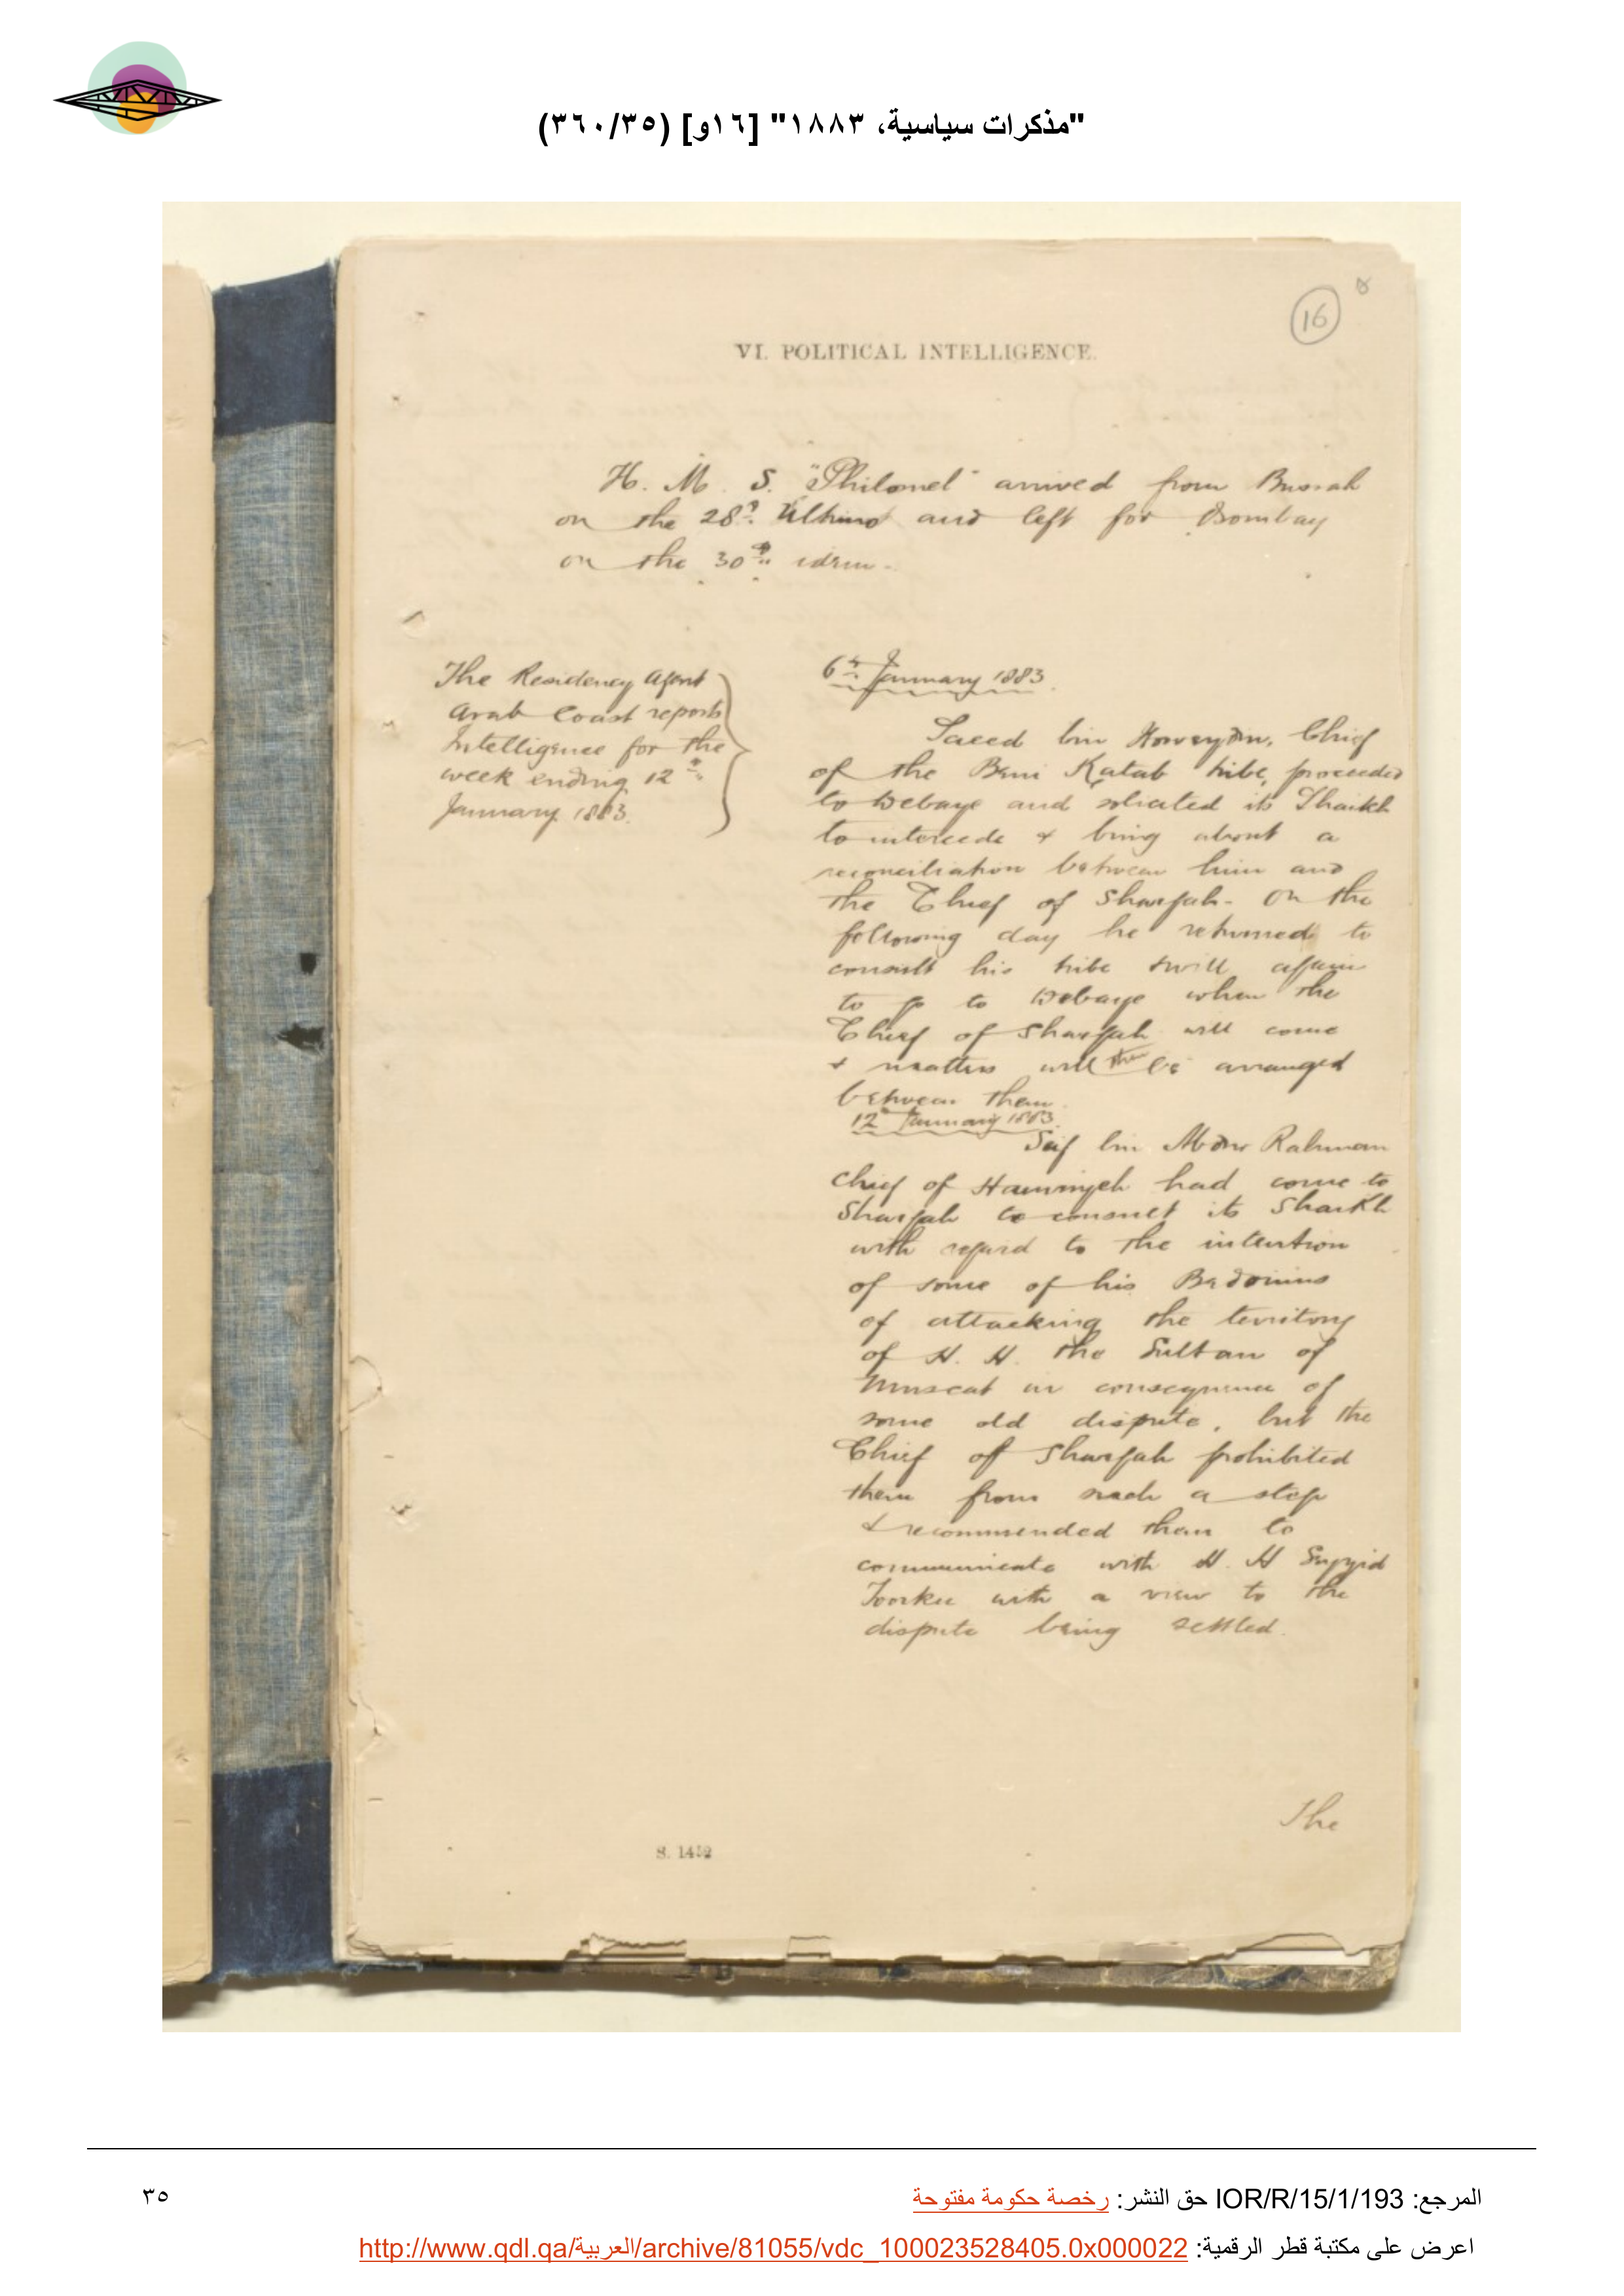 "مذكرات سياسية، ١٨٨٣" [١٦و] (٣٦٠/٣٥)
16
VI. POLITICAL INTELLIGENCE.
H. M. S. "Philomel" arrived from Bussah
on the 28th Ultimo and left for Bombay
on the 30th idem.
The Residency Agent
Arab Coast reports
Intelligence for the
week ending 12th
January 1883.
6th January 1883.
Saeed bin Howeydin, Chief
of the Beni Katab tribe, proceeded
to Debaye and solicited its Shaikh
to intercede & bring about a
reconciliation between him and
the Chief of Shargah. On the
following day he returned to
consult his tribe & will again
to go to Debaye when the
Chief of Shargah will come
& matters will then be arranged
between them.
12th January 1883.
Seif bin Abdur Rahman
Chief of Hamriyeh had come to
Shargah to consult its Shaikh
with regard to the intention
of some of his Bedouins
of attacking the territory
of H. H. the Sultan of
Muscat in consequence of
some old dispute, but the
Chief of Shargah prohibited
them from such a step
& recommended them to
communicate with H. H Sayyid
Toorkee with a view to the
dispute being settled.
The
المرجع: IOR/R/15/1/193 حق النشر: رخصة حكومة مفتوحة
٣٥
اعرض على مكتبة قطر الرقمية: http://www.qdl.qa/العربية/archive/81055/vdc_100023528405.0x000022